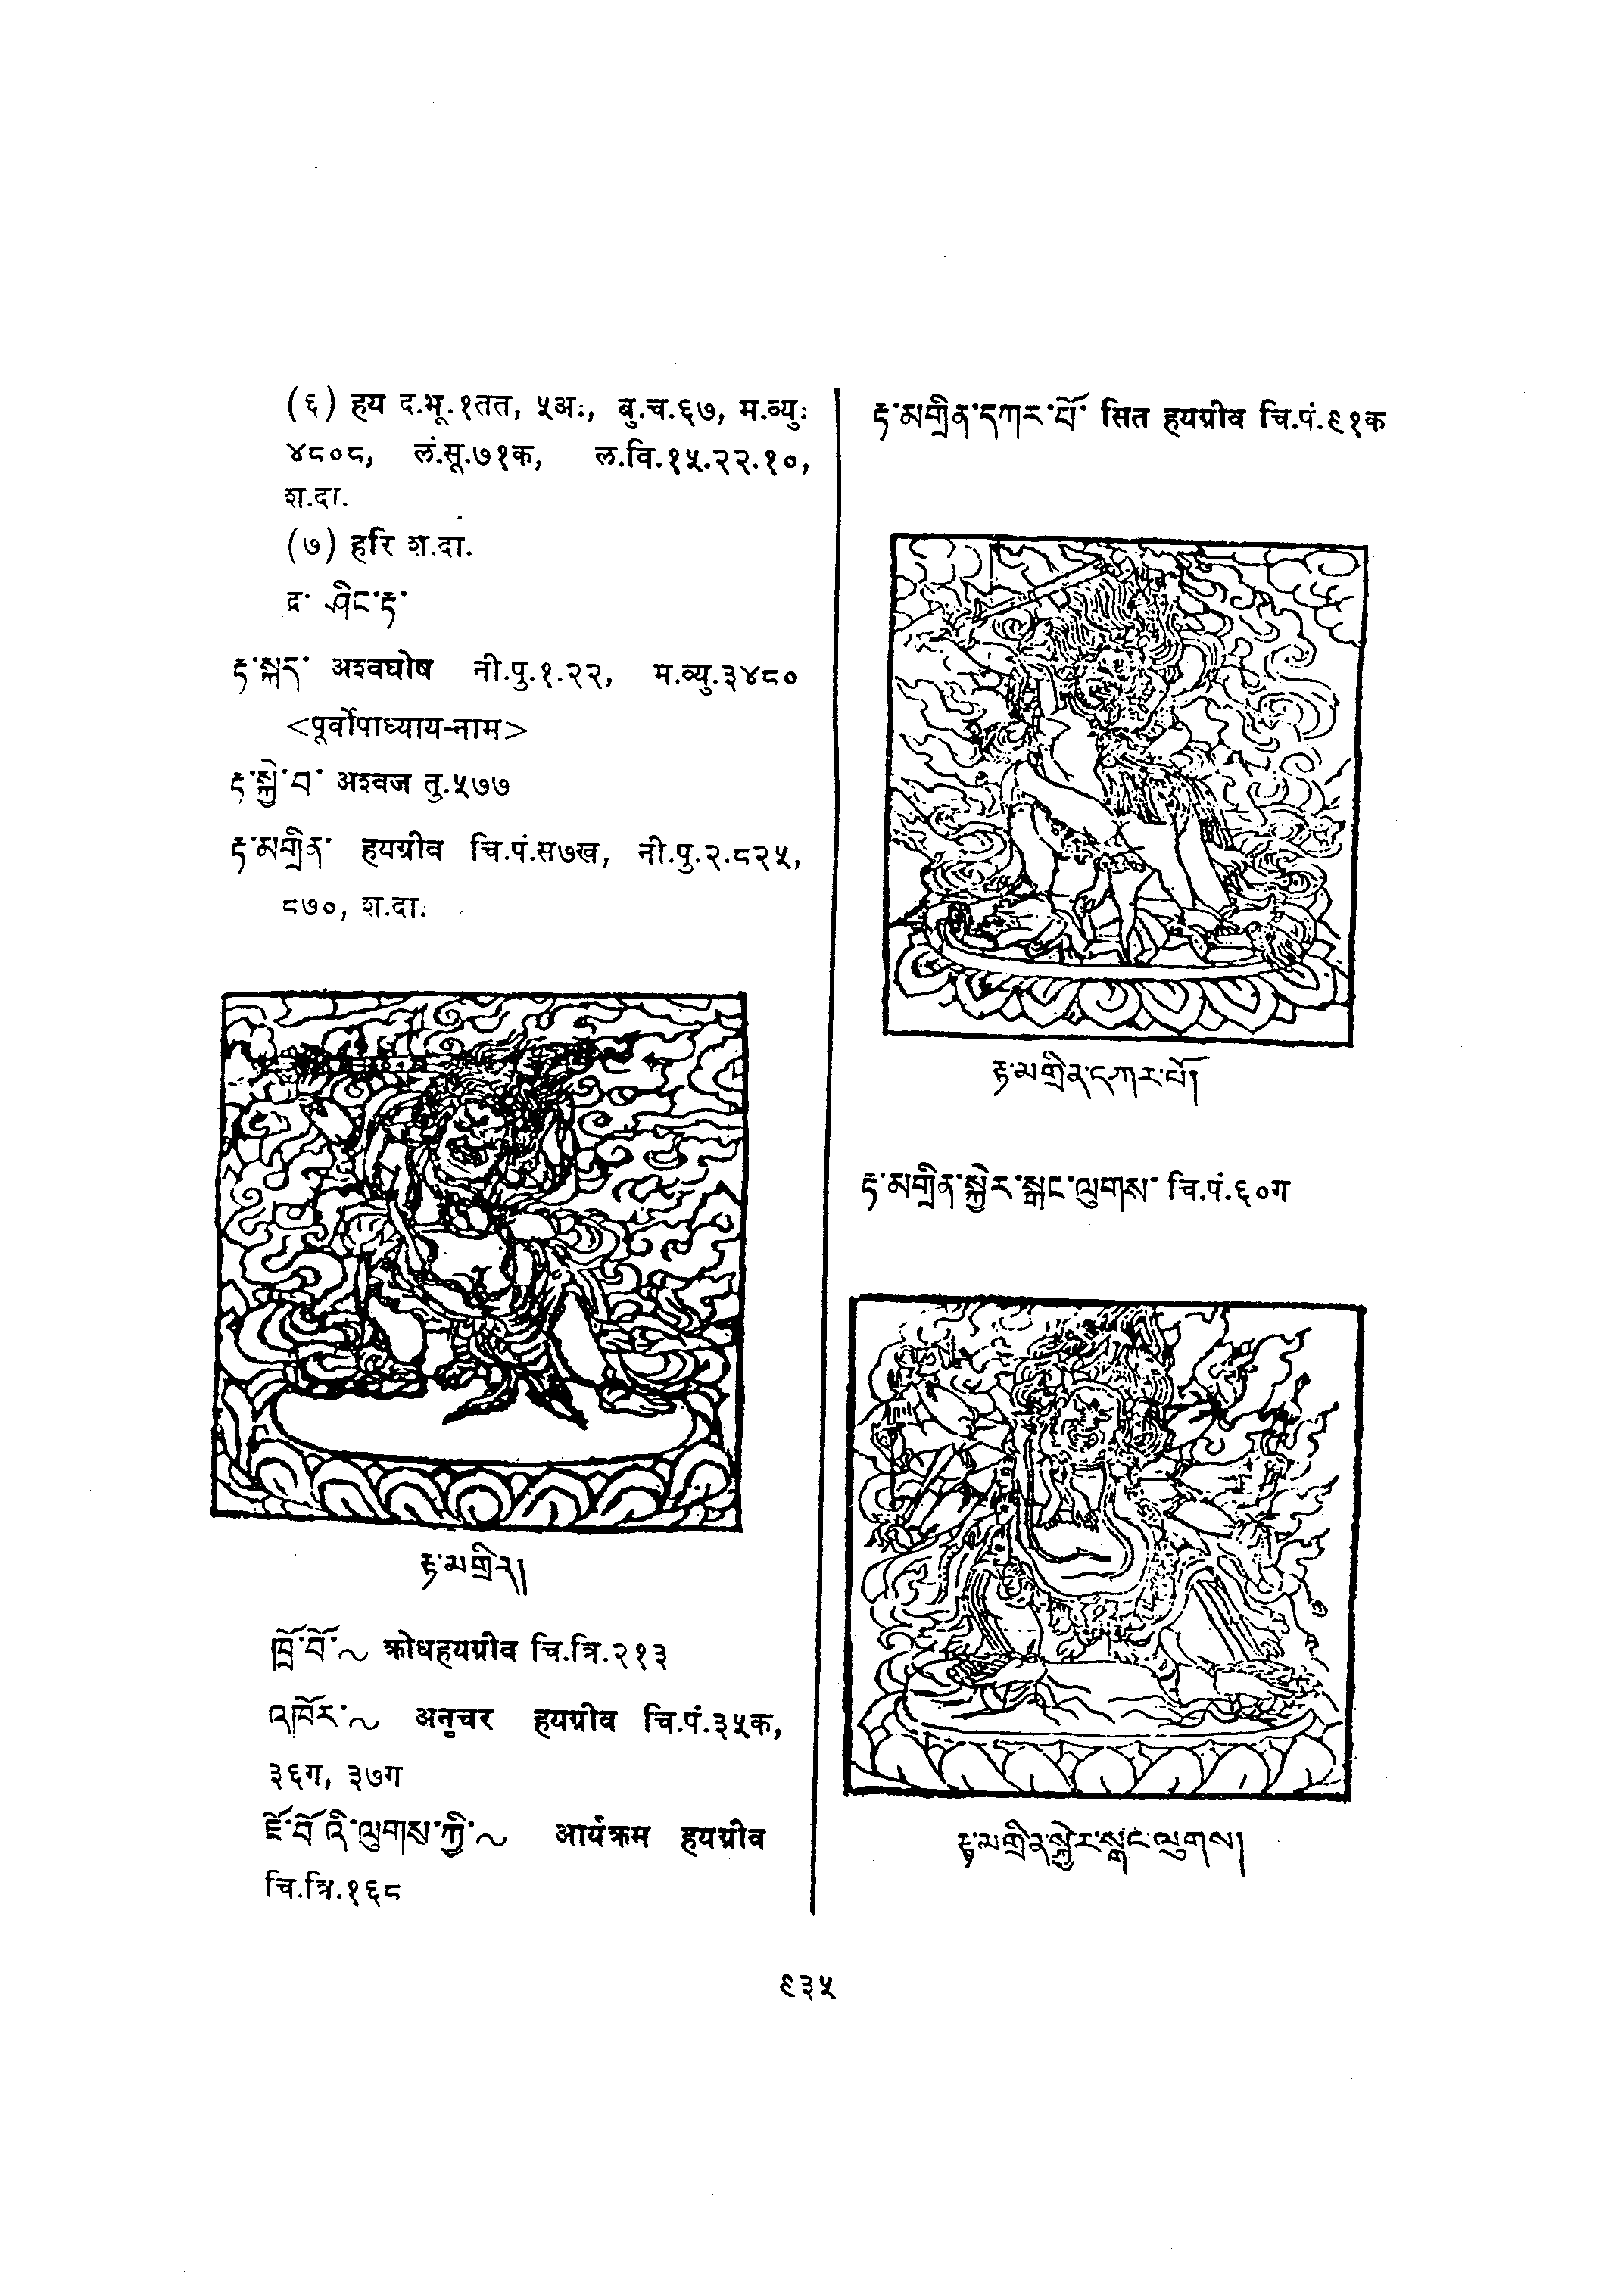 (६) हय द.भू.१तत, ५अः, बु.च.६७, म.व्यु.
४८०८, लं.सू.७१क, ल.वि.१५.२२.१०,
श.दा.
(७) हरि श.दा.
द्र་ ཤིང་རྟ་
རྟ་སྐད་ अश्वघोष नी.पु.१.२२, म.व्यु.३४८०
<पूर्वोपाध्याय-नाम>
རྟ་སྐྱེ་བ་ अश्वज तु.५७७
རྟ་མགྲིན་ हयग्रीव चि.पं.स७ख, नी.पु.२.८२५,
८७०, श.दा.
རྟ་མགྲིན།
ཁྲོ་བོ་~ क्रोधहयग्रीव चि.त्रि.२१३
འཁོར་~ अनुचर हयग्रीव चि.पं.३५क,
३६ग, ३७ग
ཇོ་བོ་འི་ལུགས་ཀྱི་~ आर्यक्रम हयग्रीव
चि.त्रि.१६८
རྟ་མགྲིན་དཀར་པོ་ सित हयग्रीव चि.पं.९१क
རྟ་མགྲིན་དཀར་པོ།
རྟ་མགྲིན་སྐྱེར་སྒང་ལུགས་ चि.पं.६०ग
རྟ་མགྲིན་སྐྱེར་སྒང་ལུགས།
९३५